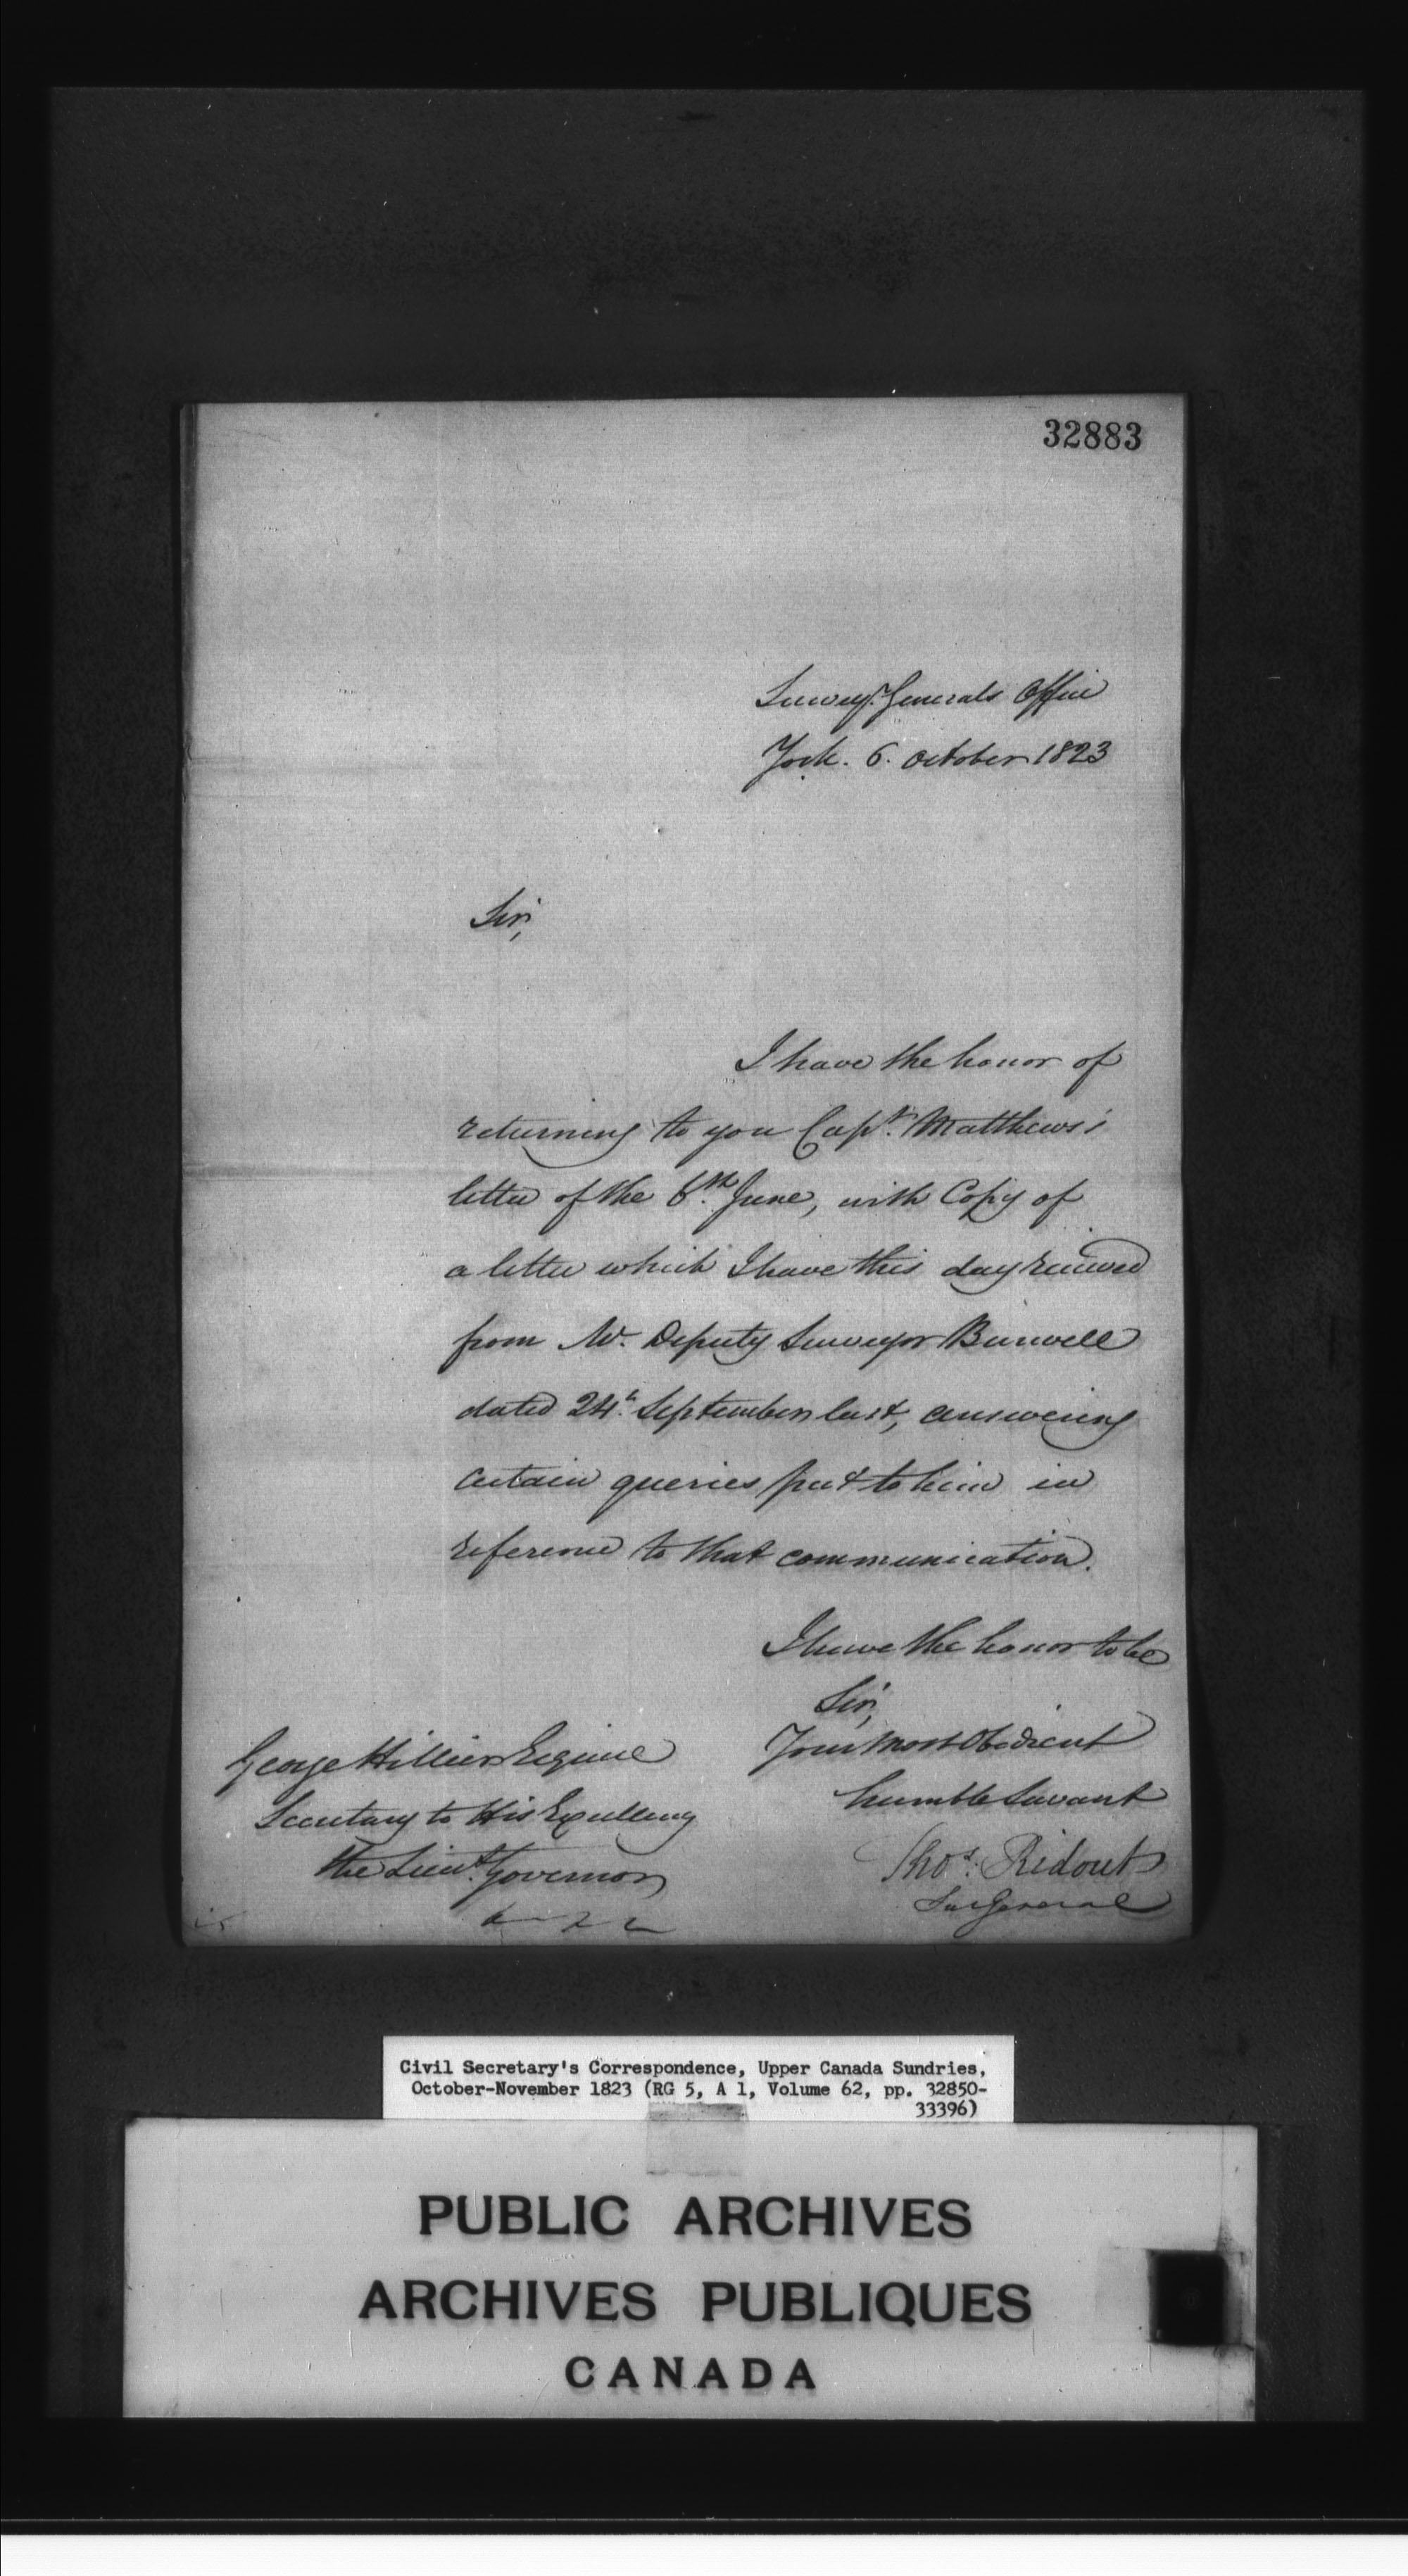 32883
Survey.r Generals Office
York. 6. October 1823
Sir,
I have the honor of
returning to you Capt. Matthews's
letter of the 6.th June, with Copy of
a letter which I have this day received
from Mr. Deputy Surveyor Burwell
dated 24.h September last, answering
certain queries put to him in
reference to that communication.
I have the honor to be
Sir,
Your most Obedient
humble Servant
Thos. Ridout
Sur General
George Hillier Esquire
Secretary to His Excellency
the Lieut. Governor
Civil Secretary's Correspondence, Upper Canada Sundries,
October-November 1823 (RG 5, A 1, Volume 62, pp. 32850-
33396)
PUBLIC ARCHIVES
ARCHIVES PUBLIQUES
CANADA